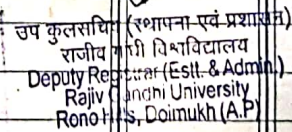 उप कुलसचिव (स्थापना एवं प्रशासन)
राजीव गांधी विश्वविद्यालय
Deputy Registrar (Estt. & Admin.)
Rajiv Gandhi University
Rono Hills, Doimukh (A.P)